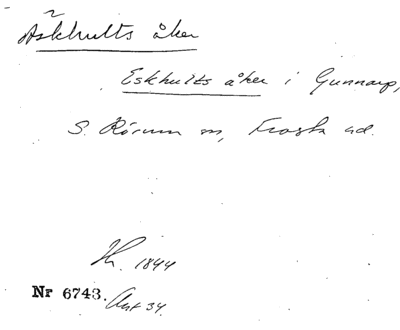 Äskhults åker
Eskhults åker i Gunnarp,
S. Rörum sn, Frosta hd.
1844
Nr 6743. Ant 34.